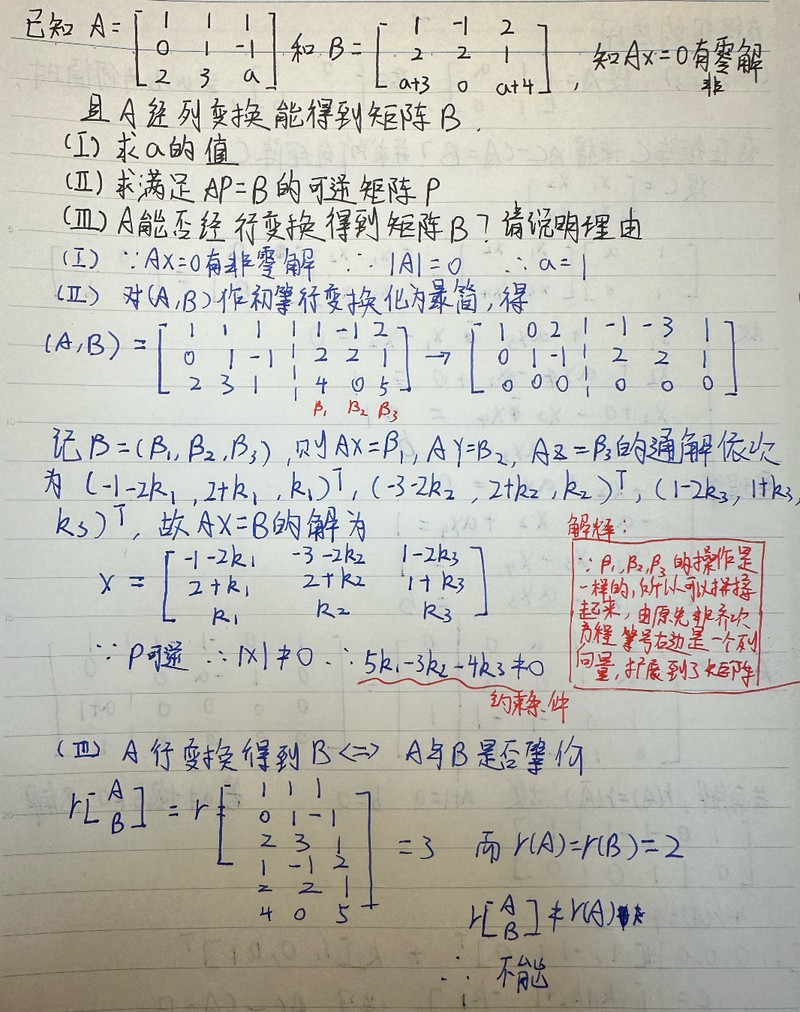 已知 A = [1 1 1; 0 1 -1; 2 3 a] 和 B = [1 -1 2; 2 2 1; a+3 0 a+4], 知Ax=0有非零解
且A经列变换能得到矩阵B.
(I) 求a的值
(II) 求满足AP=B的可逆矩阵P
(III) A能否经行变换得到矩阵B? 请说明理由
(I) ∵AX=0有非零解 ∴|A|=0 ∴a=1
(II) 对(A,B)作初等行变换化为最简,得
(A,B) = [1 1 1 | 1 -1 2; 0 1 -1 | 2 2 1; 2 3 1 | 4 0 5] → [1 0 2 | -1 -3 1; 0 1 -1 | 2 2 1; 0 0 0 | 0 0 0]
β₁ β₂ β₃
记B=(β₁,β₂,β₃),则AX=β₁, AY=β₂, AZ=β₃的通解依次
为 (-1-2k₁, 2+k₁, k₁)ᵀ, (-3-2k₂, 2+k₂, k₂)ᵀ, (1-2k₃, 1+k₃,
k₃)ᵀ, 故AX=B的解为
X = [-1-2k₁ -3-2k₂ 1-2k₃; 2+k₁ 2+k₂ 1+k₃; k₁ k₂ k₃]
解释:
∵β₁,β₂,β₃的操作是
一样的,所以可以拼接
起来,由原先非齐次
方程 等号右边是一个列
向量,扩展到了大矩阵
∵P可逆 ∴|X|≠0 ∴5k₁-3k₂-4k₃≠0
约束条件
(III) A行变换得到B <=> A与B是否等价
r[A; B] = r[1 1 1; 0 1 -1; 2 3 1; 1 -1 2; 2 2 1; 4 0 5] = 3 而 r(A)=r(B)=2
r[A; B]≠r(A)
∴不能